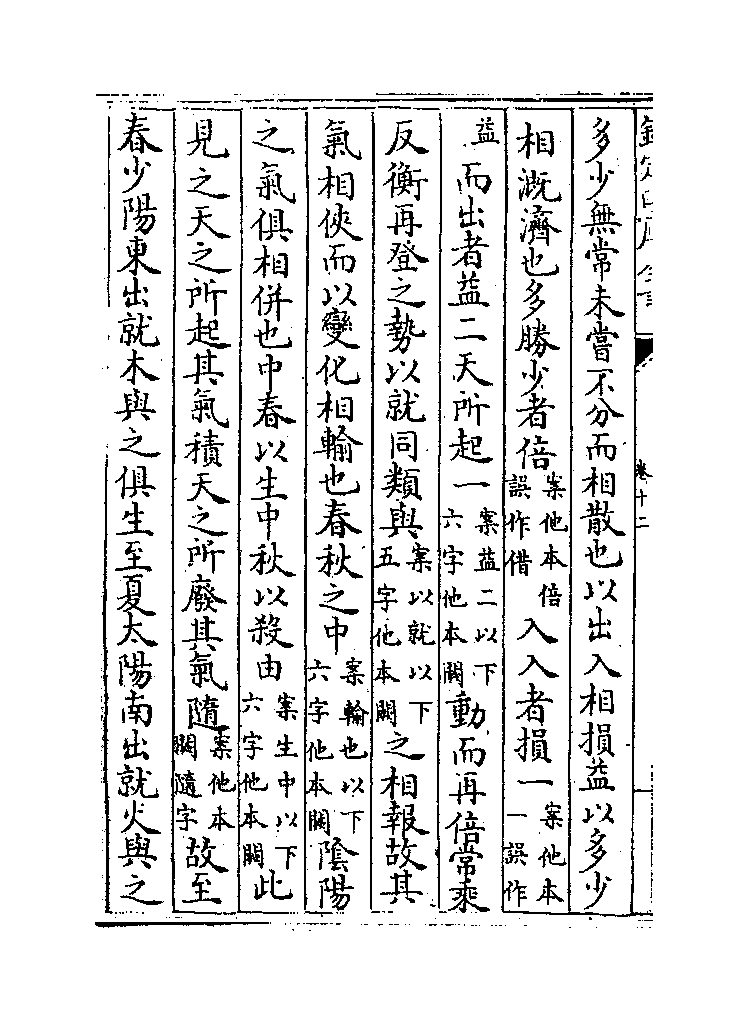 欽定四庫全書 卷十二
多少無常未嘗不分而相散也以出入相損益以多少
相溉濟也多勝少者倍案他本倍誤作借入入者損一案他本一誤作
益而出者益二天所起一案益二以下六字他本闕動而再倍常乘
反衡再登之勢以就同類與案以就以下五字他本闕之相報故其
氣相俠而以變化相輸也春秋之中案輸也以下六字他本闕陰陽
之氣俱相併也中春以生中秋以殺由案生中以下六字他本闕此
見之天之所起其氣積天之所廢其氣隨案他本闕隨字故至
春少陽東出就木與之俱生至夏太陽南出就火與之